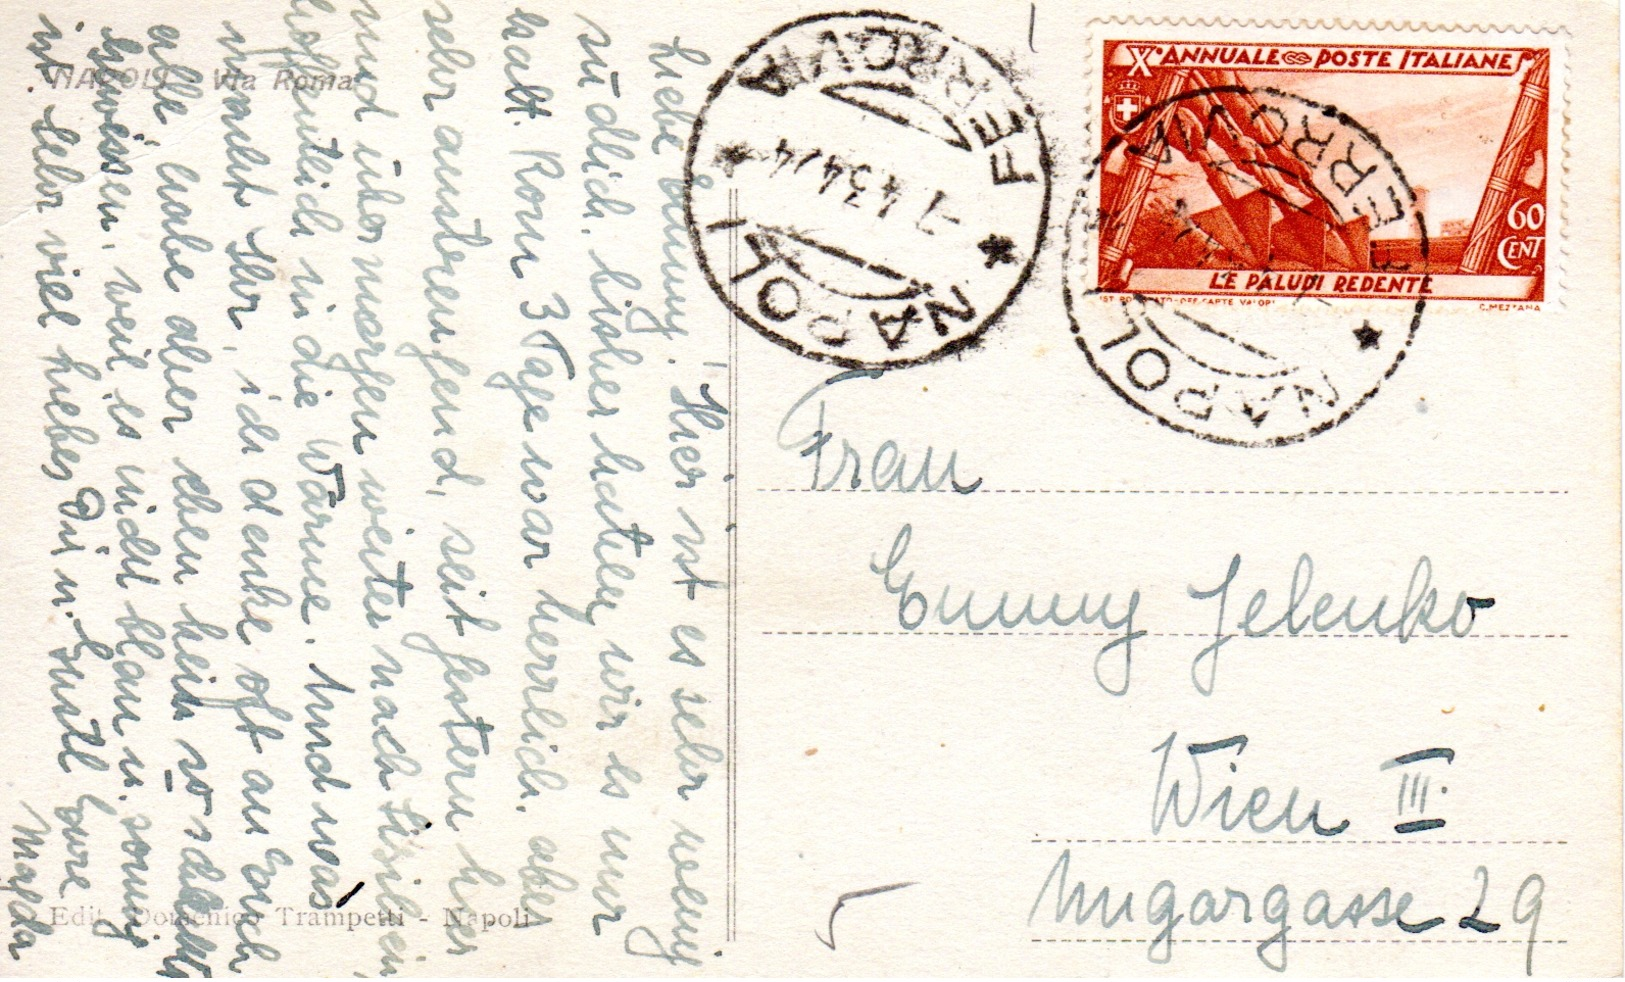 NAPOLI - Via Roma
Liebe Emmy! Hier ist es sehr wenig
südlich, bisher hatten wir es nur
kalt. Rom 3 Tage war herrlich, aber
sehr anstrengend, seit gestern hier
und übermorgen weiter nach Sizilien
hoffentlich in die Wärme. Und was
macht Ihr, ich denke oft an Euch
alle, habe aber eben kein so schlechtes
Gewissen, weil es nicht blau u. sonnig
ist. Sehr viel Liebes Dir u. Gustl Eure
Mafda
Edit. Domenico Trampetti - Napoli
NAPOLI FERROVIA
7.4.34
X° ANNUALE POSTE ITALIANE
60
CENT
LE PALUDI REDENTE
C. MEZZANA
NAPOLI FERROVIA
Frau
Emmy Jelenko
Wien III.
Ungargasse 29